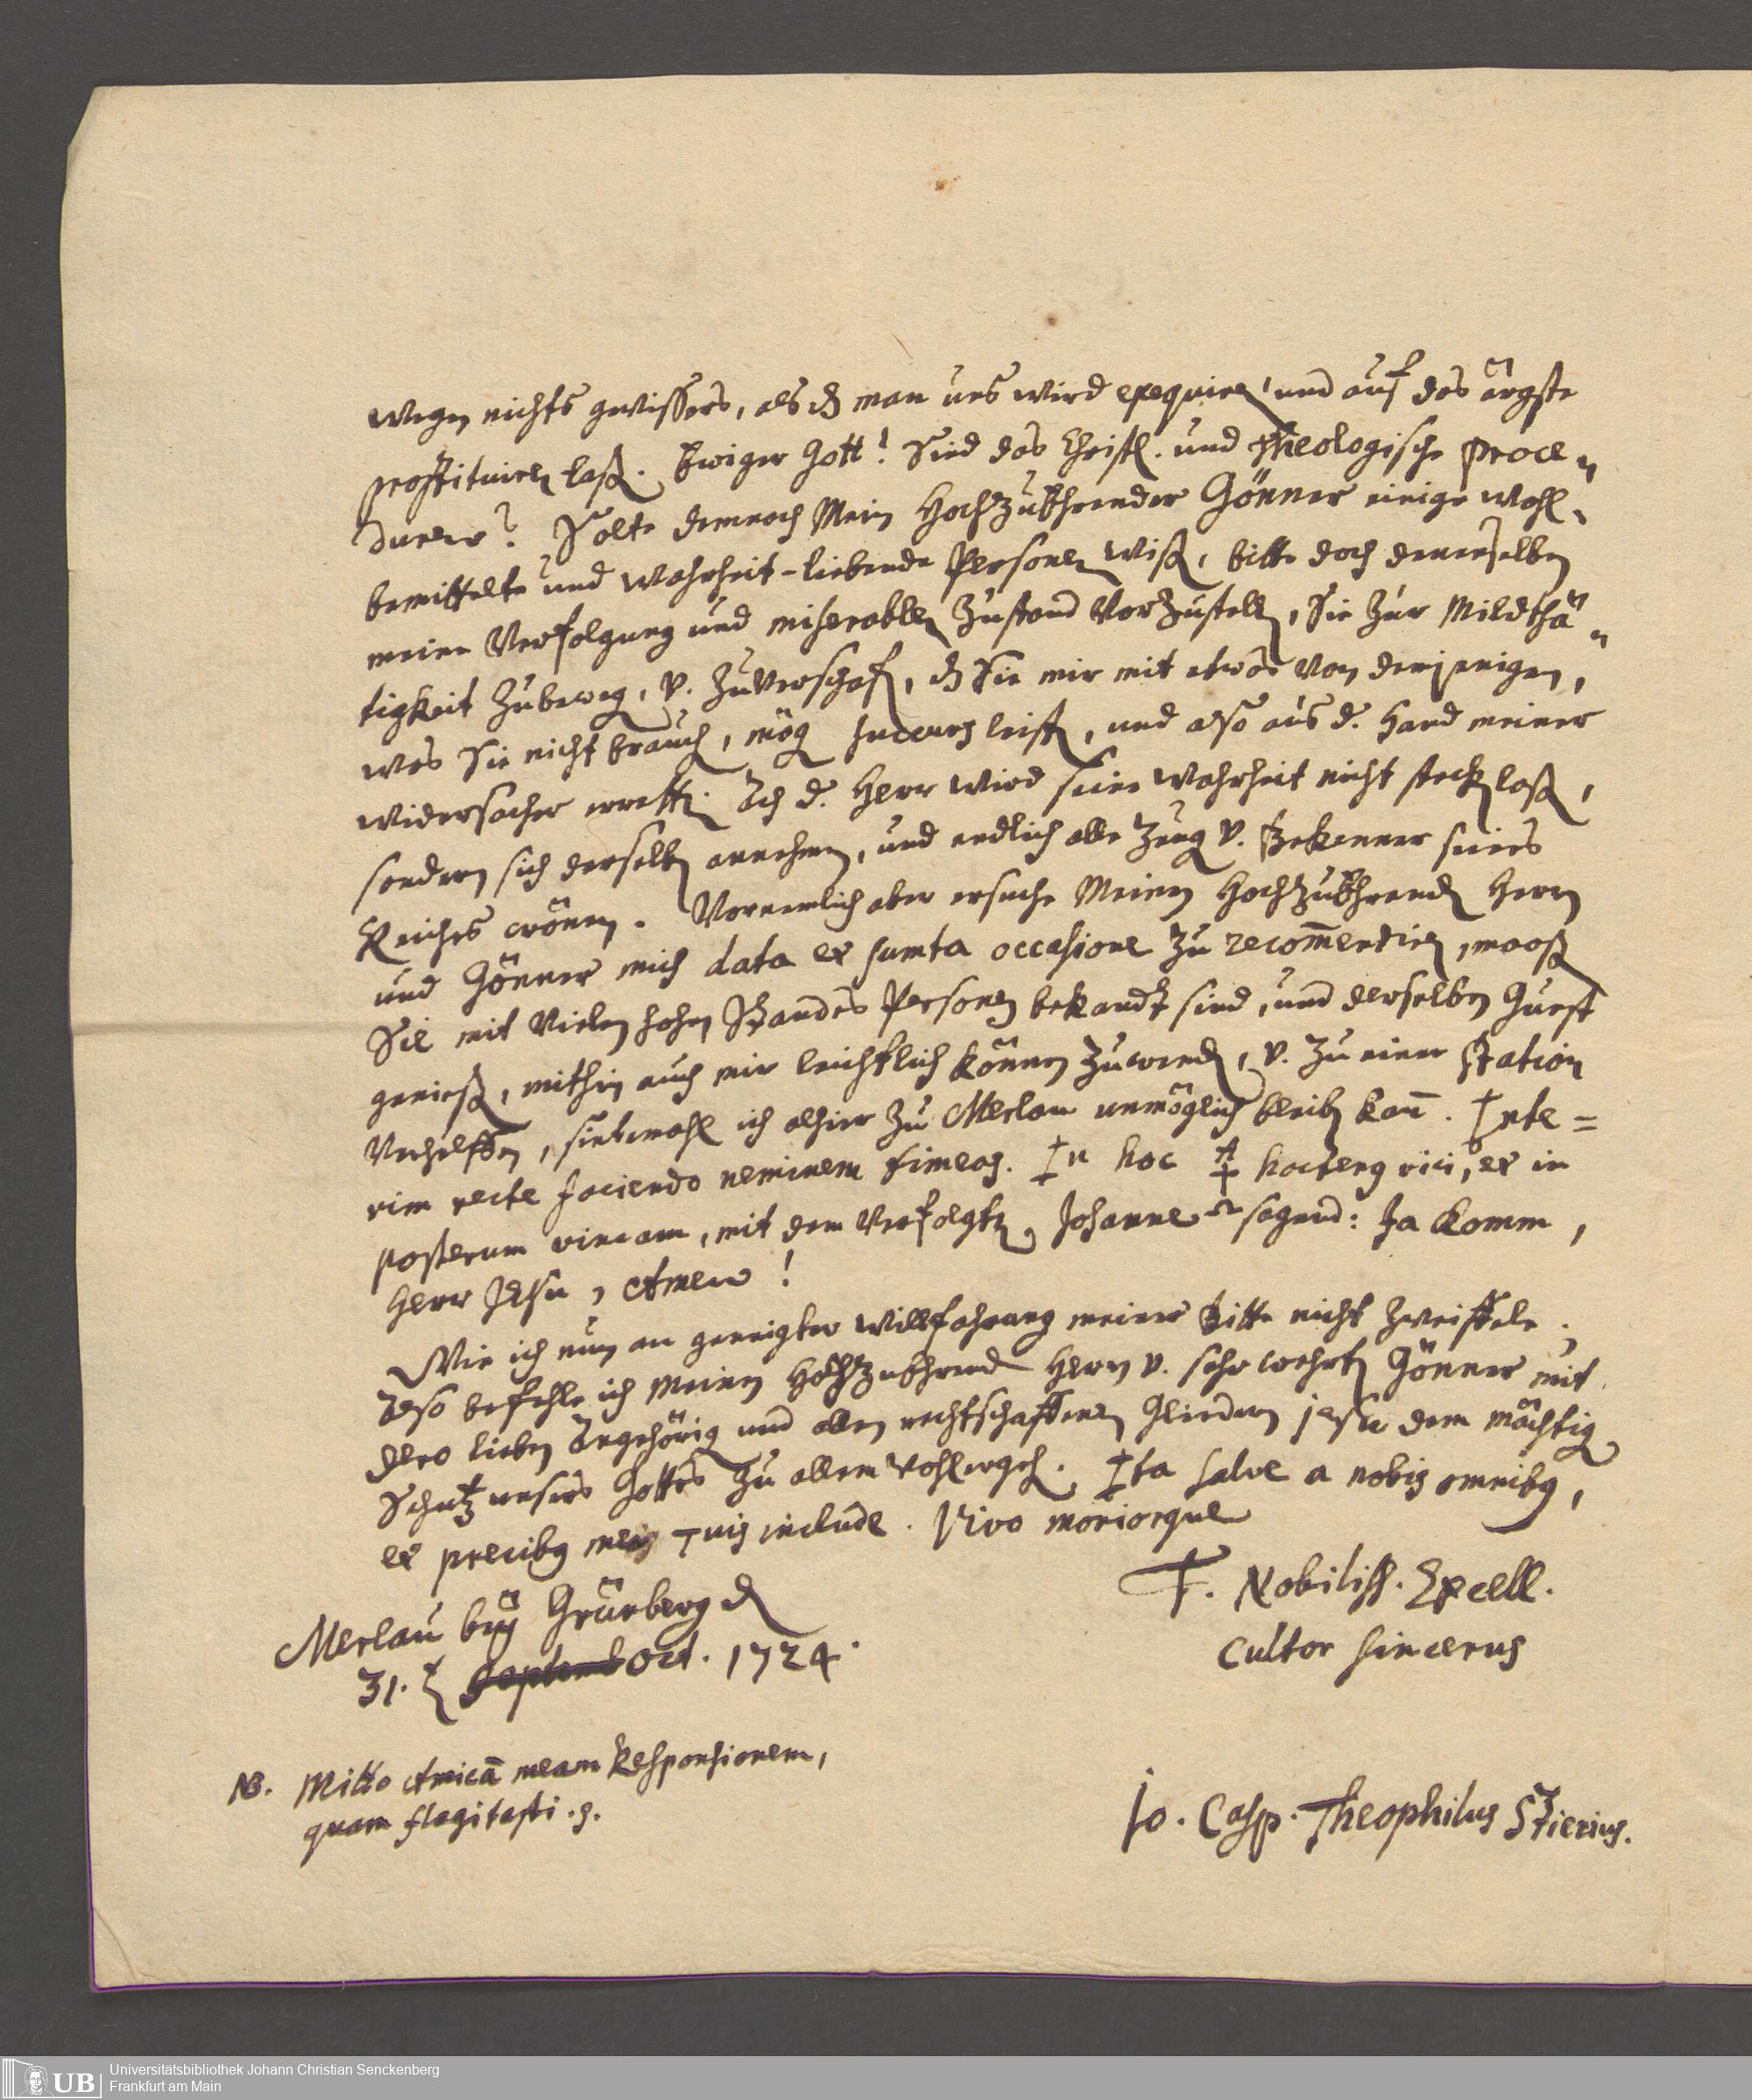 wegen nichts gewissers, als dß man uns wird exequiren und auf das ärgste
prostituiren laßen. Ewiger Gott! Sind das Christl. und Theologische Proce„
duren? Solte demnach Mein HochzuEhrender Gönner einige wohl„
bemittelte und Wahrheit-liebende Personen wißen, bitte doch denenselben
meine Verfolgung und miserablen Zustand vorzustellen, Sie zur Mildthä„
tigkeit zubewegen, v. zuverschaffen, dß Sie mir mit etwas von demjenigen,
was Sie nicht brauchen, mögen succurs leisten, und also aus d. Hand meiner
Widersacher erretten. Ach d. Herr wird seine Wahrheit nicht stecken laßen,
sondern sich derselben annehmen, und endlich alle Zeugen v. Bekenner seines
Reiches crönen. Vornemlich aber ersuche Meinen HochzuEhrenden Herrn
und Gönner mich data et sumta occasione zu recom̄endiren, maaßen
Sie mit vielen hohen Standes Personen bekandt sind, und derselben Gunst
genießen, mithin auch mir leichtlich können zuwenden, v. zu einer Station
verhelffen, sintemahl ich alhier zu Merlau unmöglich bleiben kan̄. Inte=
rim recte faciendo neminem timeas. In hoc hactenus vici, et in
posterum vincam, mit dem verfolgten Johanne sagend: Ja komm,
Herr JEsu, Amen!
Wie ich nun an geneigter Willfahrung meiner Bitte nicht zweiffele.
Also befehle ich Meinen HochzuEhrenden Herrn v. sehr wehrten Gönner mit
dero lieben Angehörigen und allen rechtschaffenen Gliedern Jesu dem mächtigen
Schutz unsers Gottes zu allem Wohlergehen. Ita salve a nobis omnibus,
et precibus meis Tuis include. Vivo moriorque
T. Nobiliss. Excell.
Cultor sincerus
Merlau bey Grünberg d
31. t Septemb Oct. 1724.
Jo. Casp. Theophilus Stierius.
NB. Mitto Amicā meam Responsionem,
quam flagitasti.
Universitätsbibliothek Johann Christian Senckenberg
Frankfurt am Main
UB